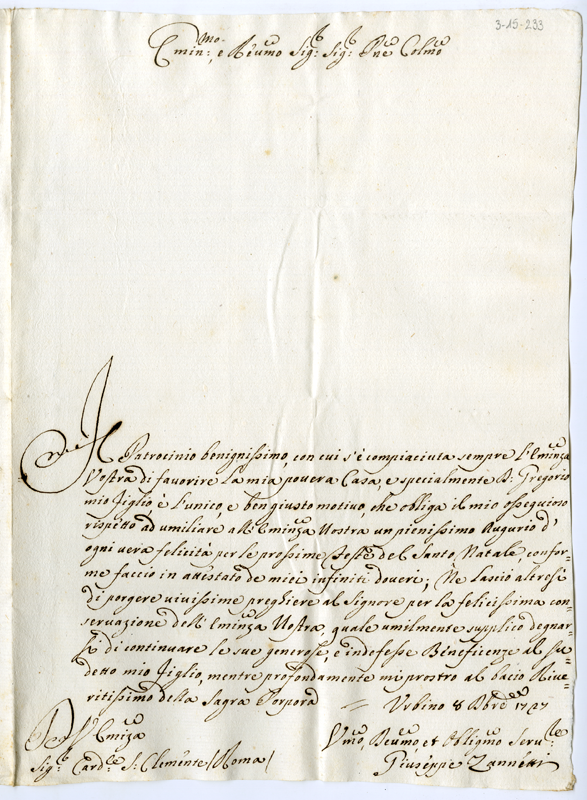 3-15-233
Emin:mo, e Reumo Sig:r Sig:r Pne Colmo
Il Patrocinio benignissimo, con cui s'è compiaciuta sempre l'Eminza
Vostra di favorire la mia povera Casa, e specialmente D: Gregorio
mio figlio è l'unico, e ben giusto motivo, che obliga il mio ossequioso
rispetto ad umiliare all'Eminza Vostra un pienissimo Augurio d'
ogni vera felicità per le prossime Feste del Santo Natale, confor=
me faccio in attestato de miei infiniti doveri; Ne lascio altresì
di porgere vivissime preghiere al Signore per la felicissima con=
servazione dell'Eminza Vostra, quale umilmente supplico degnar=
si di continuare le sue generose, e indefesse Beneficenze al su=
detto mio figlio, mentre profondamente mi prostro al bacio Rive=
ritissimo della Sagra Porpora = Urbino 8 Xbre 1727
Dell'Eminza
Sig:r Card:e S: Clemente /Roma/
Vmo, Deumo, et Obligmo Seru:re
Giuseppe Zannetti